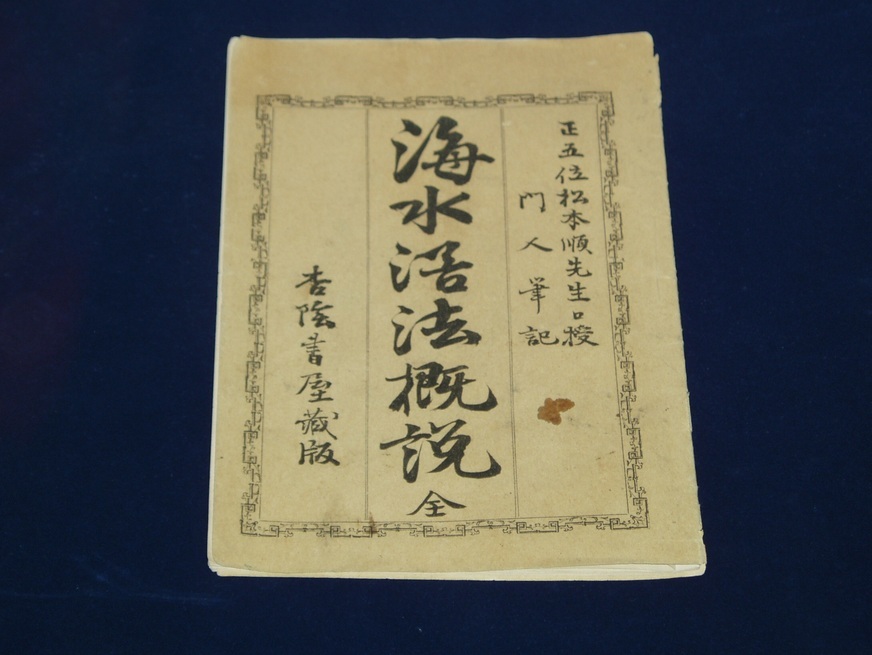 正五位松本順先生口授
門人筆記
海水浴法概説 全
杏陰書屋蔵版